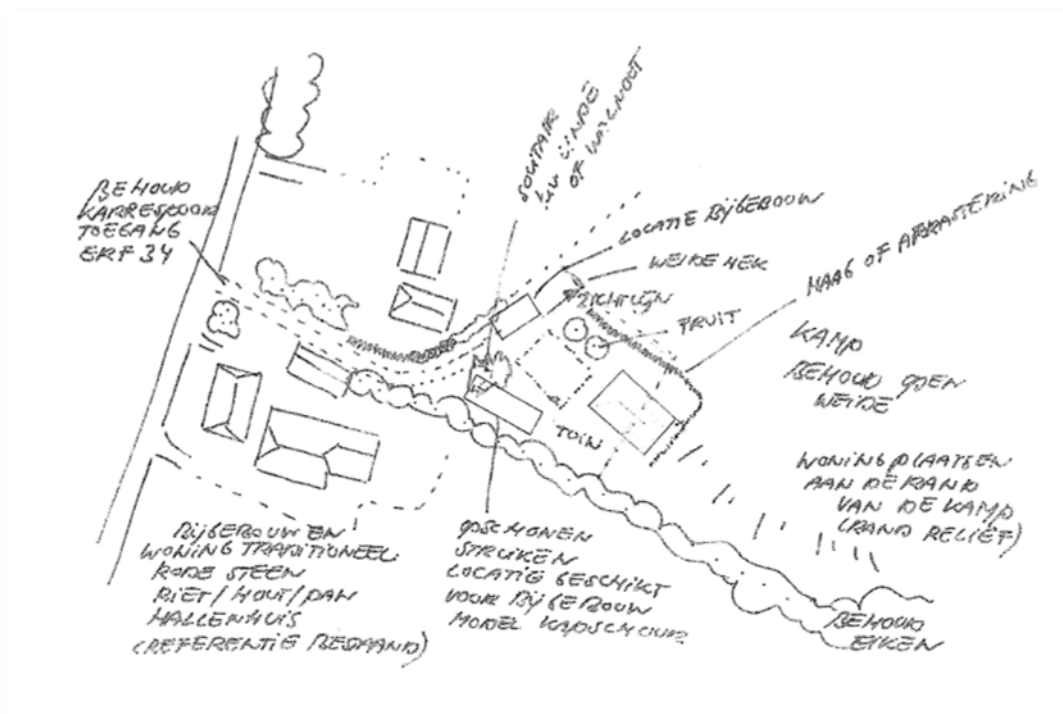 BEHOUD
KARRESPOOR
TOEGANG
ERF 34
SOLITAIR
LINDE
OF WALNOOT
LOCATIE BIJGEBOUW
WEIDE HEK
ZICHTLIJN
FRUIT
HAAG OF AFRASTERING
KAMP
BEHOUD OPEN
WEIDE
TUIN
WONING PLAATSEN
AAN DE RAND
VAN DE KAMP
(RAND RELIËF)
BIJGEBOUW EN
WONING TRADITIONEEL
RODE STEEN
RIET/HOUT/PAN
HALLENHUIS
(REFERENTIE BESTAAND)
OPSCHONEN
STRUIKEN
LOCATIE GESCHIKT
VOOR BIJGEBOUW
MODEL KAPSCHUUR
BEHOUD
EIKEN